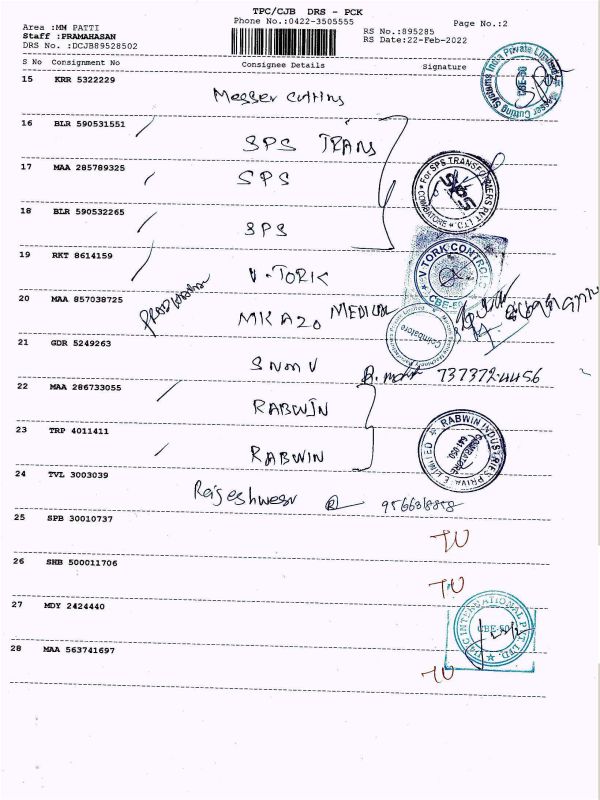 TPC/CJB DRS - PCK
Area :MM PATTI
Phone No.:0422-3505555
Page No.:2
Staff :PRAMAHASAN
RS No.:895285
DRS No. :DCJB89528502
RS Date:22-Feb-2022
S No Consignment No Consignee Details Signature
15 KRR 5322229 Messer Cutting
16 BLR 590531551 SPS TRANS
17 MAA 285789325 SPS
18 BLR 590532265 SPS
19 RKT 8614159 V-TORK
20 MAA 857038725 MEDICAL
21 GDR 5249263 SNMV 7373724456
22 MAA 286733055 RABWIN
23 TRP 4011411 RABWIN
24 TVL 3003039 Rajeshwari
25 SPB 30010737
26 SHB 500011706
27 MDY 2424440
28 MAA 563741697
Messer Cutting Systems India Private Limited
CBE-50
For SPS TRANSFORMERS PVT LTD.
COIMBATORE
V TORK CONTROLS
CBE-50
Coimbatore
RABWIN INDUSTRIES PRIVATE LIMITED
COIMBATORE
641 050
INTERNATIONAL PVT. LTD.
CBE-50